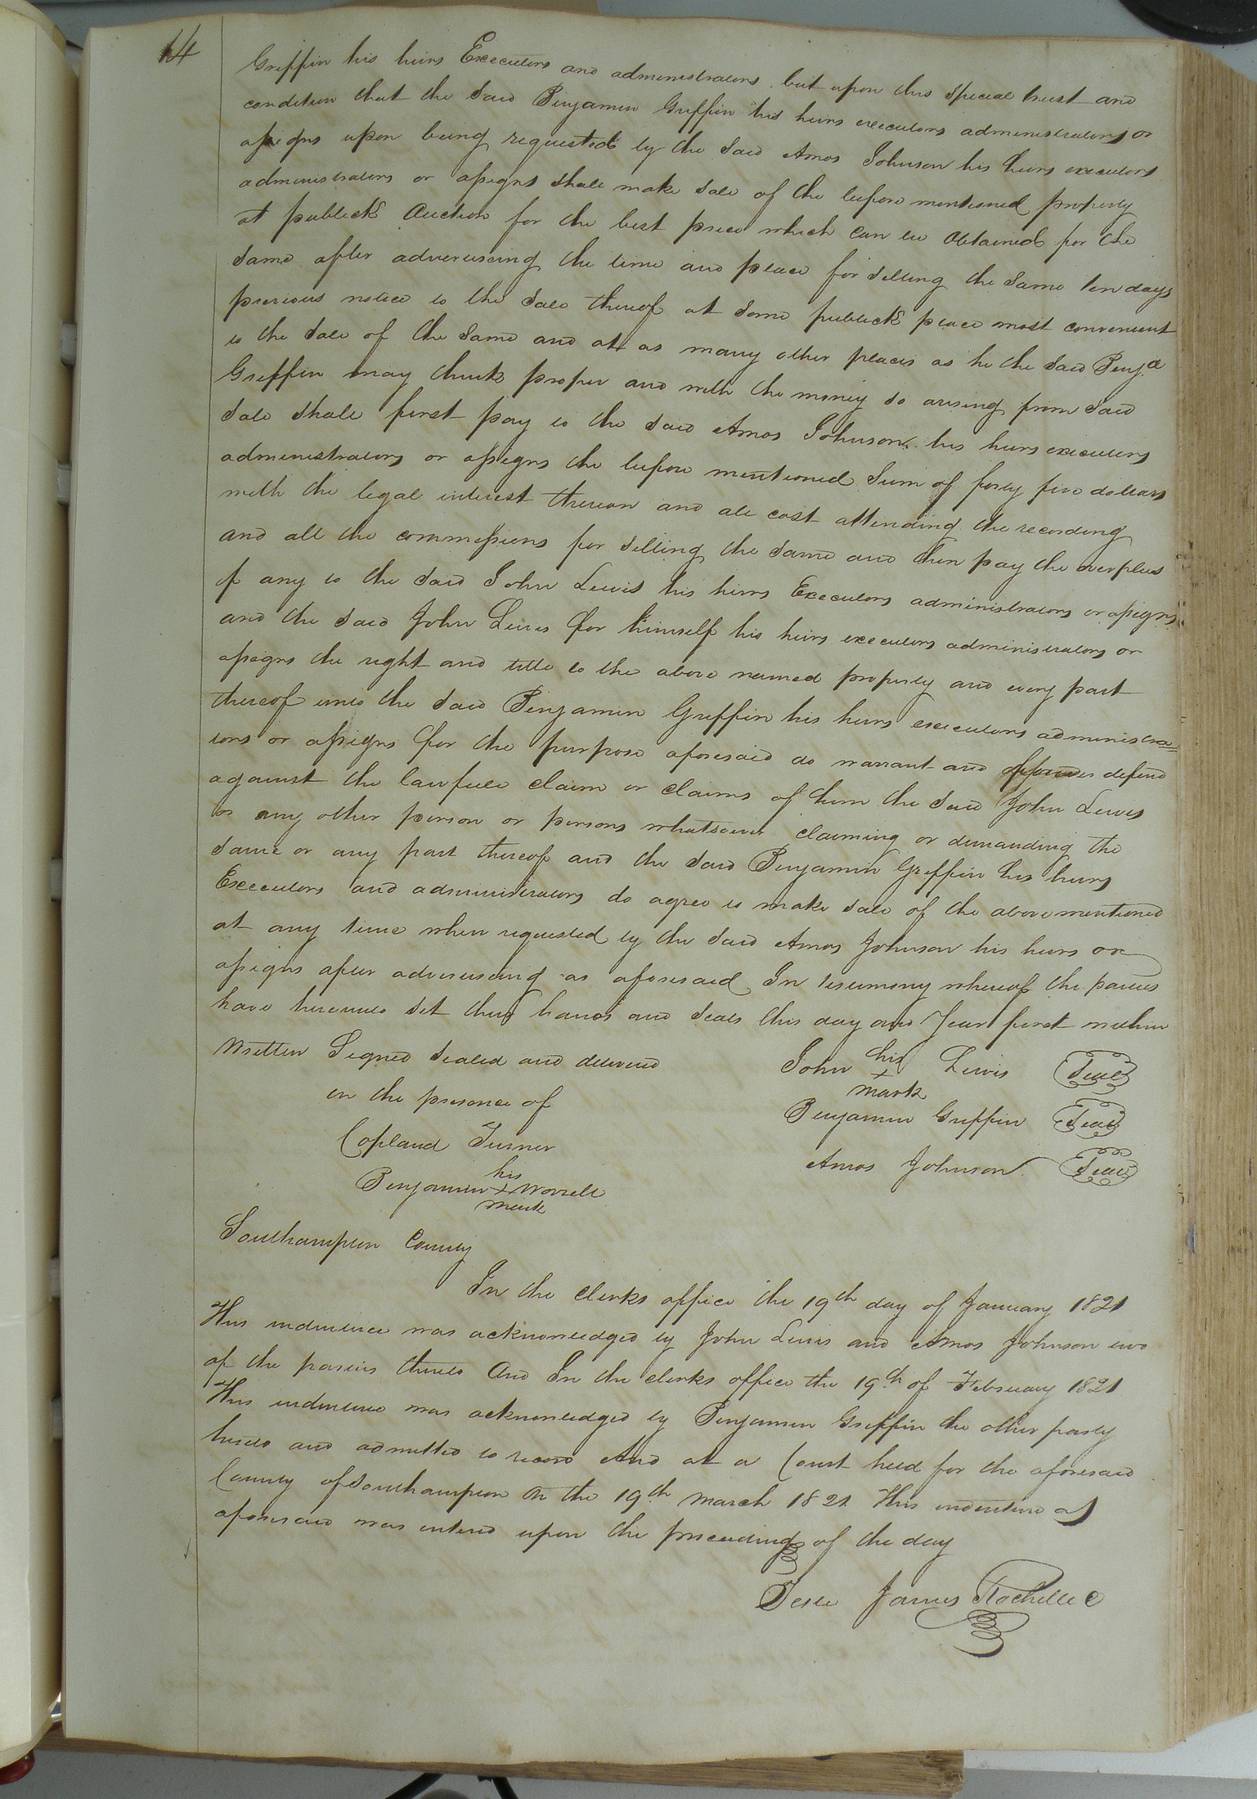 14
Griffin his heirs Executors and administrators but upon this Special trust and
condition that the said Benjamin Griffin his heirs executors administrators or
assigns upon being requested by the said Amos Johnson his heirs executors
administrators or assigns shall make sale of the before mentioned property
at publick Auction for the best price which can be obtained for the
same after advertising the time and place for selling the same ten days
previous notice to the sale thereof at some publick place most convenient
to the sale of the same and at as many other places as he the said Benja
Griffin may think proper and with the money so arising from said
sale shall first pay to the said Amos Johnson his heirs executors
administrators or assigns the before mentioned Sum of forty five dollars
with the legal interest thereon and all cost attending the recording
and all the commissions for selling the same and then pay the overplus
if any to the said John Lewis his heirs Executors administrators or assigns
and the said John Lewis for himself his heirs executors administrators or
assigns the right and title to the above named property and every part
thereof unto the said Benjamin Griffin his heirs executors administra=
tors or assigns for the purpose aforesaid do warrant and defend
against the lawfull claim or claims of him the said John Lewis
or any other person or persons whatsoever claiming or demanding the
same or any part thereof and the said Benjamin Griffin his heirs
Executors and administrators do agree to make sale of the above mentioned
at any time when requested by the said Amos Johnson his heirs or
assigns after advertising as aforesaid In testimony whereof the parties
have hereunto set their hands and seals this day and Year first within
Written Signed Sealed and delivered
in the presence of
Copland Turner
his
Benjamin + Worrell
mark
John his Lewis Seal
+
mark
Benjamin Griffin Seal
Amos Johnson Seal
Southampton County
In the clerks office the 19th day of January 1821
This indenture was acknowledged by John Lewis and Amos Johnson two
of the parties thereto And In the clerks office the 19th of February 1821
This indenture was acknowledged by Benjamin Griffin the other party
thereto and admitted to record And at a Court held for the aforesaid
County of Southampton on the 19th march 1821 This indenture as
aforesaid was entered upon the proceedings of the day
Teste James Rochelle C